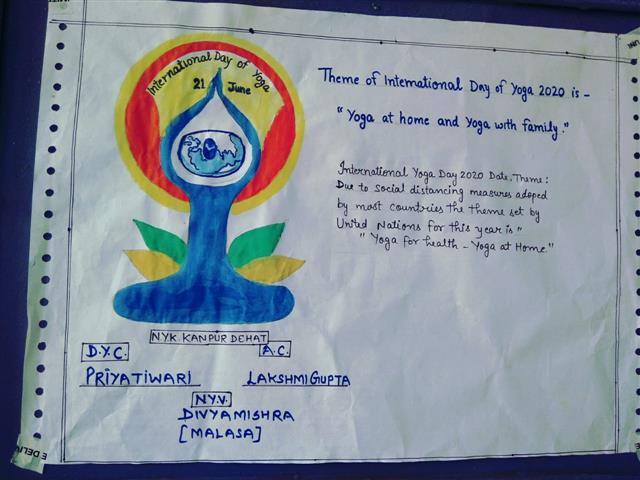 International Day of Yoga
21 June
Theme of International Day of Yoga 2020 is -
"Yoga at home and Yoga with family."
International Yoga Day 2020 Date, Theme:
Due to social distancing measures adoped
by most countries the theme set by
United Nations for this year is"
"Yoga for health - Yoga at Home."
NYK. KANPUR DEHAT
D.Y.C. A.C.
PRIYATIWARI LAKSHMI GUPTA
N.Y.V.
DIVYAMISHRA
[MALASA]